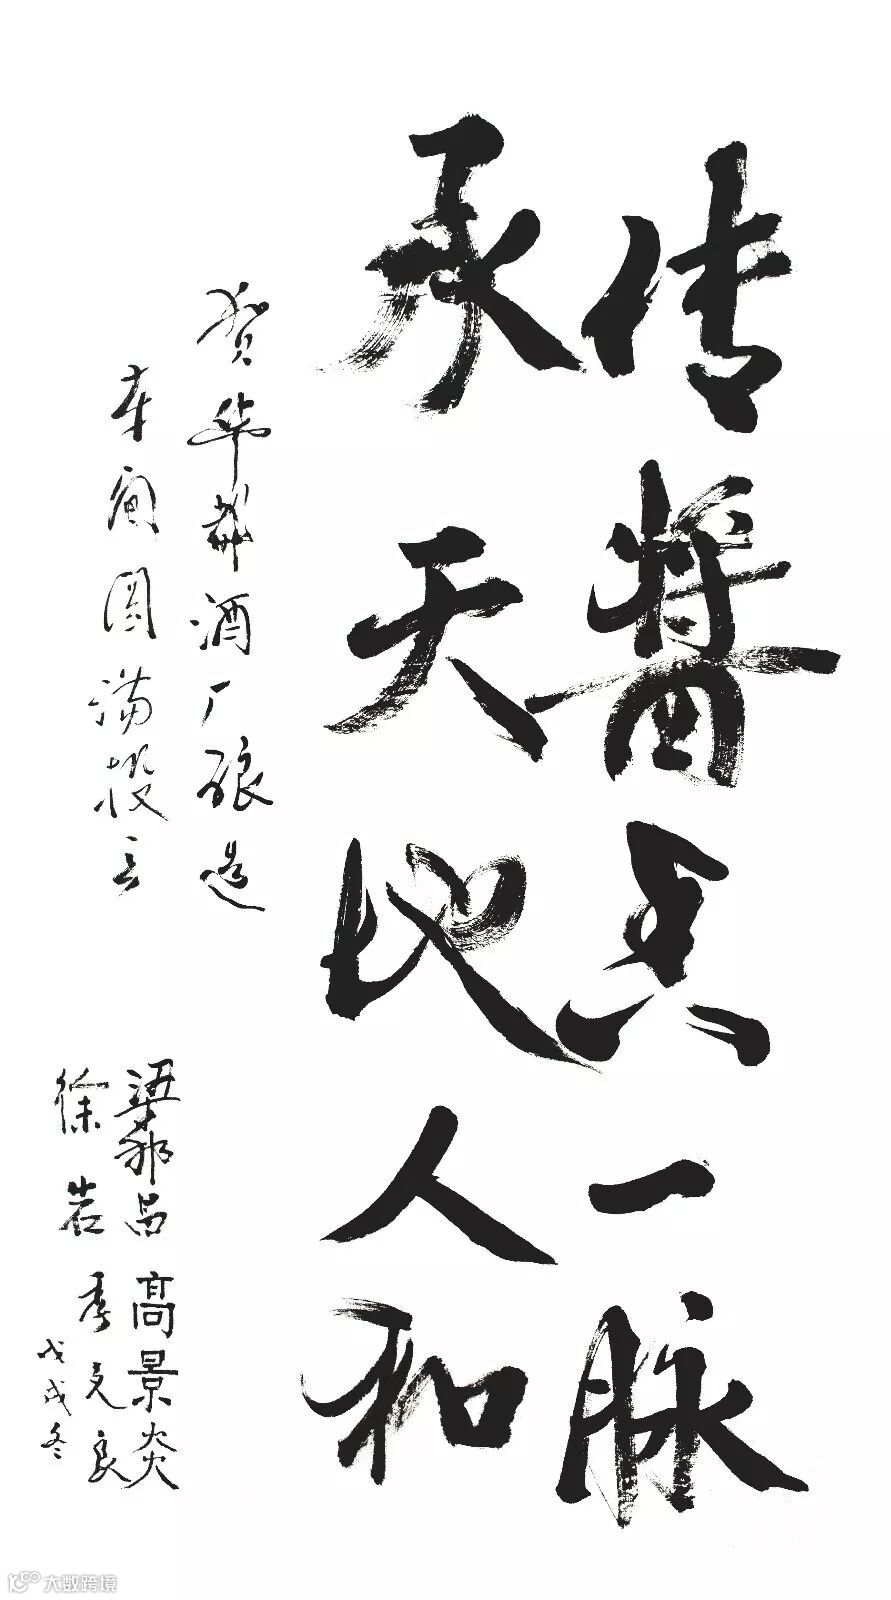 传酱香一脉
承天地人和
贺华都酒厂酿造
车间圆满投产
梁邦昌 高景炎
徐岩 季克良
戊戌冬
大数跨境